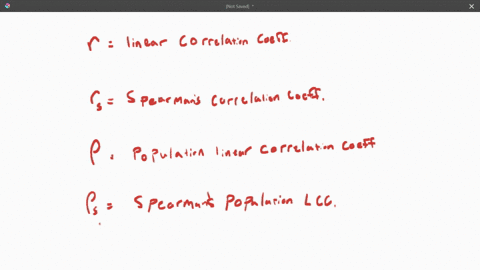 [Not Saved]
r = linear correlation coeff.
rs = Spearman's correlation coeff.
ρ = Population linear correlation coeff
ρs = Spearman's Population LCC.